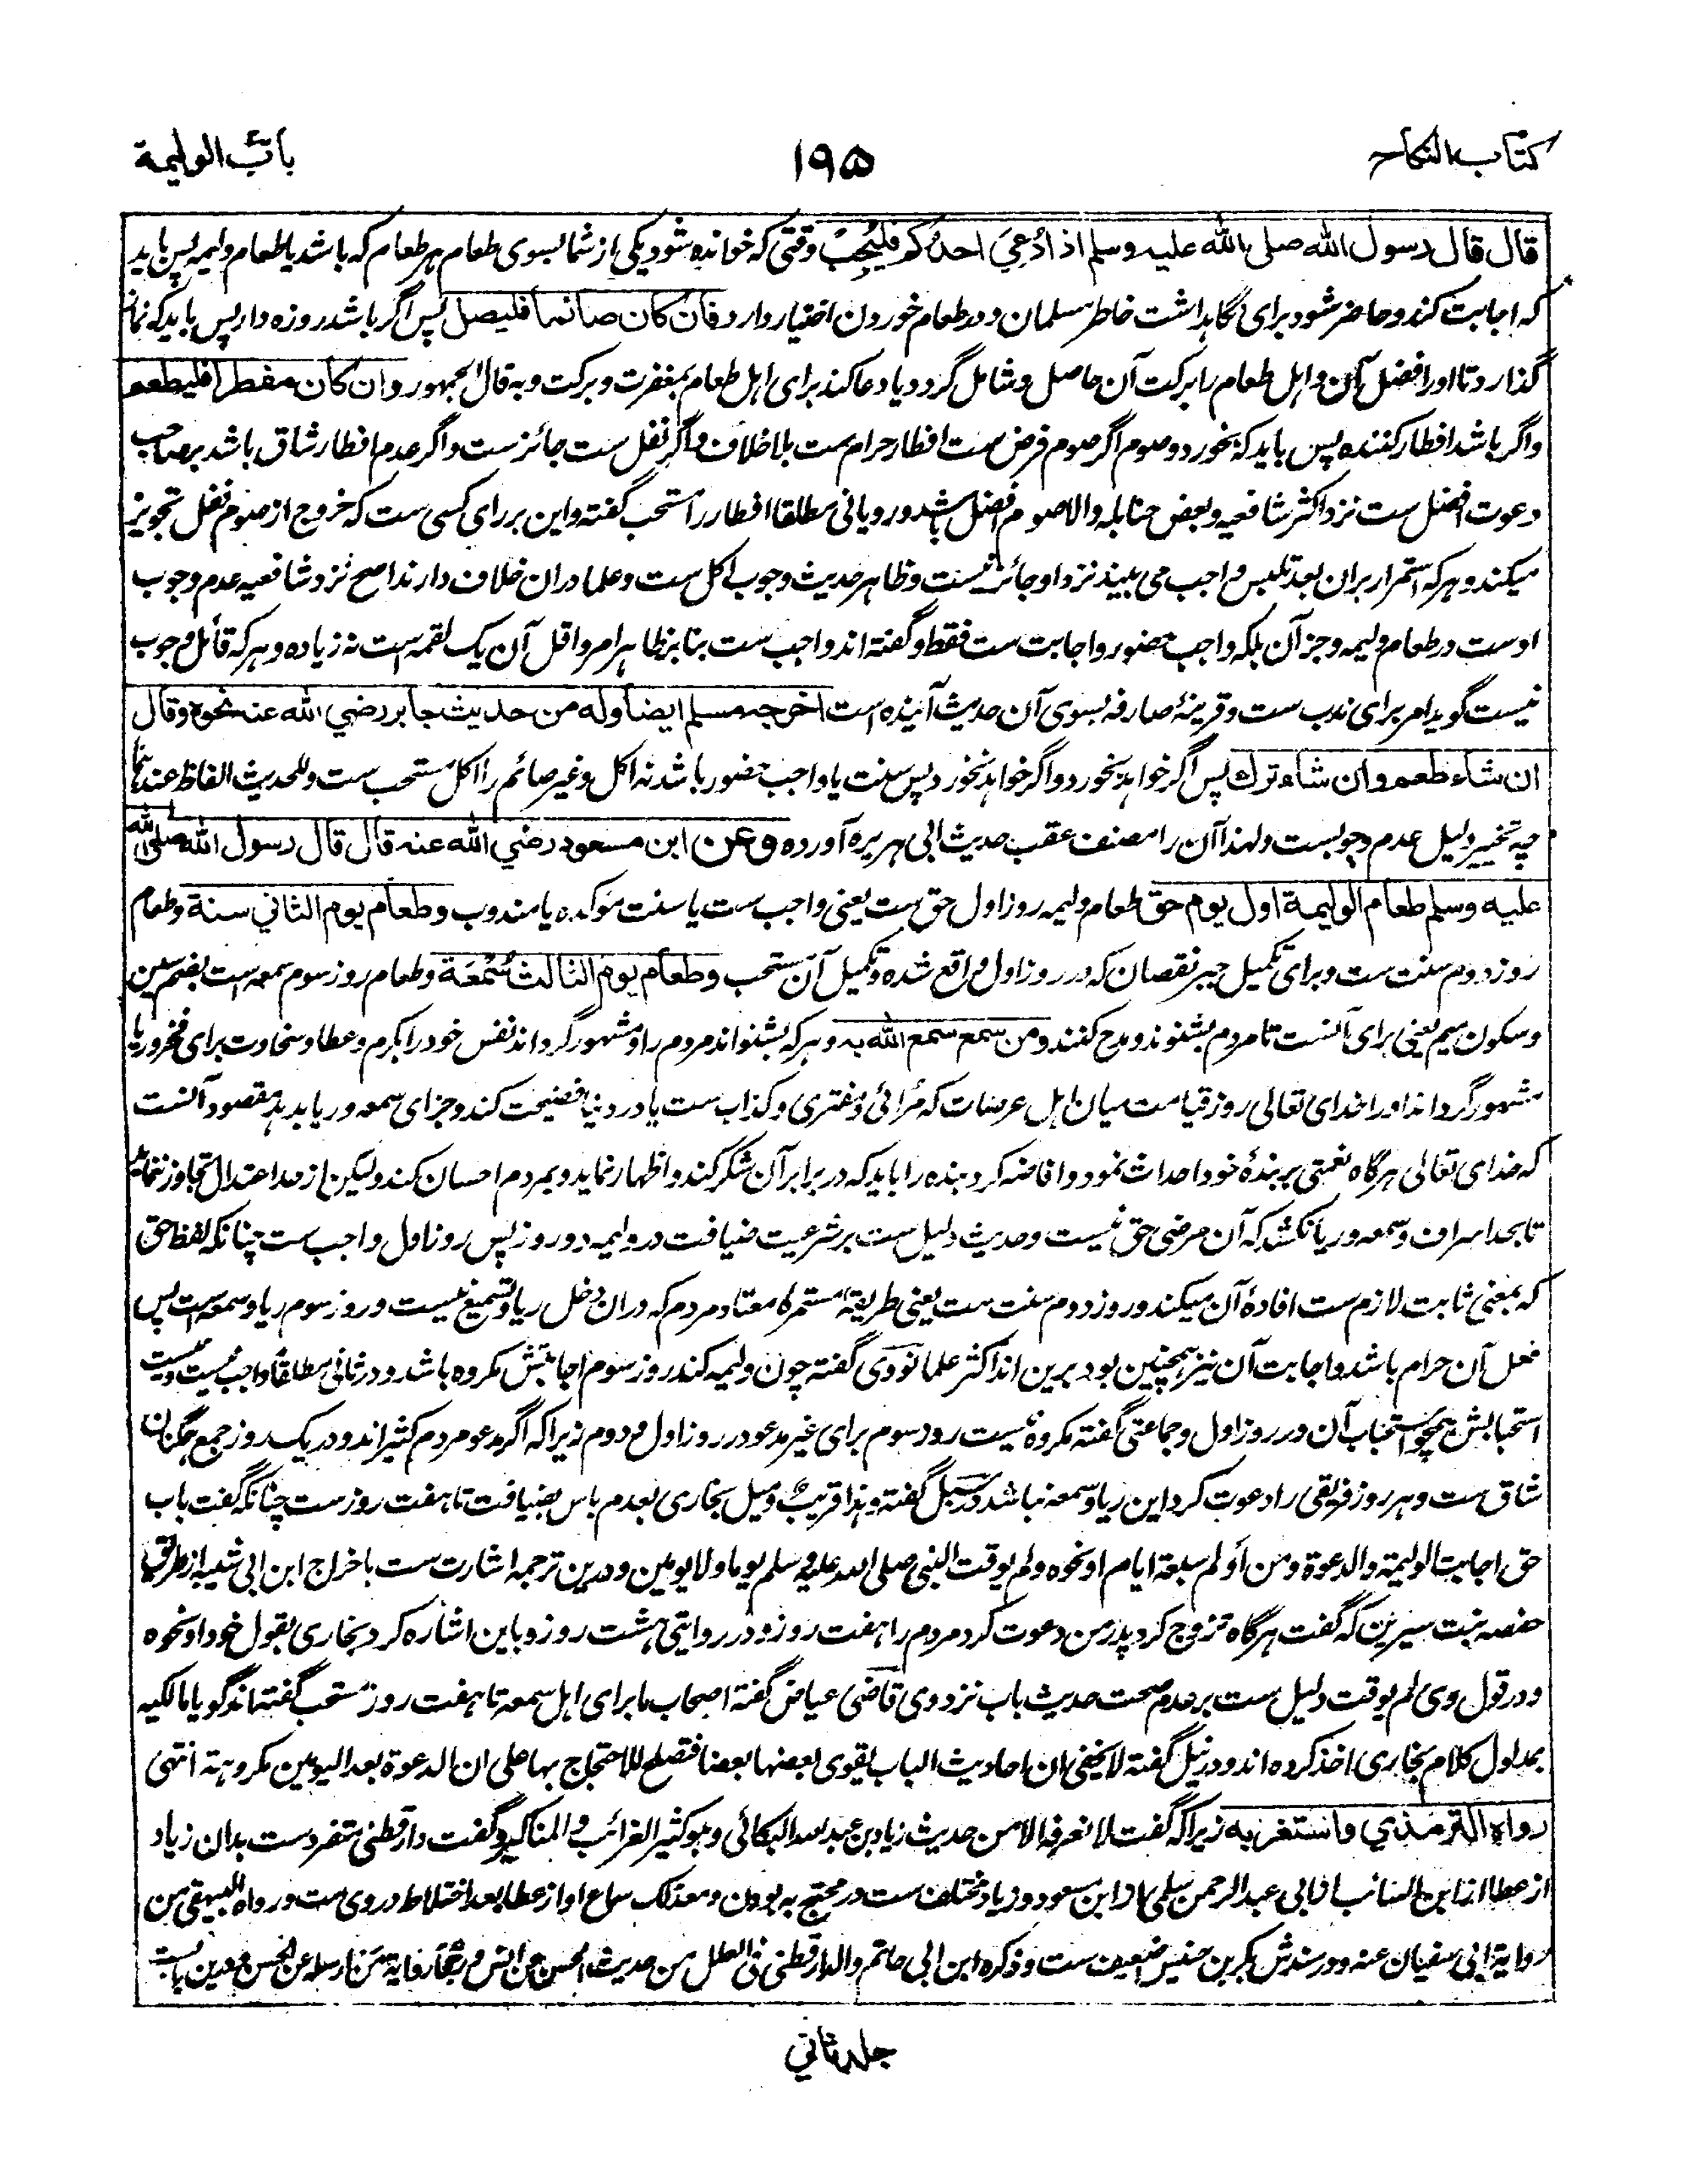 كتاب النكاح
۱۹۵
باب الوليمة
قال قال رسول الله صلى الله عليه وسلم اذا دُعِيَ احدكم فليُجِبْ وقتی که خوانده شود یکی از شما بسوی طعام هر طعام که باشد یا طعام ولیمه پس باید
که اجابت کند و حاضر شود برای نگاهداشت خاطر مسلمان و در طعام خوردن اختیار دارد فان كان صائما فليصل پس اگر باشد روزه دار پس باید که نماز
گذارد تا او را فضل آن و اهل طعام را برکت آن حاصل و شامل گردد یا دعا کند برای اهل طعام بمغفرت و برکت و به قال الجمهور وان كان مفطرا فليطعم
و اگر باشد افطار کننده پس باید که بخورد و صوم اگر صوم فرض ست افطار حرام ست بلا خلاف و اگر نفل ست جائز ست و اگر عدم افطار شاق باشد بر صاحب
دعوت افضل ست نزد اکثر شافعیه و بعض حنابله والا صوم افضل باشد و رویانی مطلقا افطار را مستحب گفته و این بر رای کسی ست که خروج از صوم نفل تجویز
میکند و هر که استمرار بران بعد تلبس واجب می بیند نزد او جائز نیست و ظاهر حدیث وجوب اکل ست و علما دران خلاف دارند اصح نزد شافعیه عدم وجوب
اوست در طعام ولیمه و جز آن بلکه واجب حضور و اجابت ست فقط و گفته اند واجب ست بنا بر ظاهر امر و اقل آن یک لقمه است نه زیاده و هر که قائل وجوب
نیست گوید امر برای ندب ست و قرینهٔ صارفه بسوی آن حدیث آینده است اخرجه مسلم ايضا وله من حديث جابر رضي الله عنه نحوه وقال
ان شاء طعم وان شاء ترك پس اگر خواهد بخورد و اگر خواهد نخورد پس سنت یا واجب حضور باشد نه اکل و غیر صائم را اکل مستحب ست وللحدیث الفاظ عندهما
چه تخییر دلیل عدم وجوبست ولهذا آن را مصنف عقب حدیث ابی هریره آورده وعن ابن مسعود رضي الله عنه قال قال رسول الله صلى الله
عليه وسلم طعام الوليمة اول يوم حق طعام ولیمه روز اول حق ست یعنی واجب ست یا سنت موکده یا مندوب وطعام يوم الثاني سنة وطعام
روز دوم سنت ست و برای تکمیل جبر نقصان که در روز اول واقع شده و تکمیل آن مستحب وطعام يوم الثالث سُمْعَة وطعام روز سوم سمعه است بضم سین
و سکون میم یعنی برای آنست تا مردم بشنوند و مدح کنند ومن سمع سمع الله به و هر که بشنواند مردم را و مشهور گرداند نفس خود را بکرم و عطا و سخاوت برای فخر و ریا
مشهور گرداند او را خدای تعالی روز قیامت میان اهل عرصات که مُرائی و مفتری و کذاب ست یا در دنیا فضیحت کند و جزای سمعه و ریا بدهد مقصود آنست
که خدای تعالی هرگاه نعمتی بر بندهٔ خود احداث نمود و افاضه کرد بنده را باید که در برابر آن شکر کند و اظهار نماید و بمردم احسان کند ولیکن از حد اعتدال تجاوز ننماید
تا بحد اسراف و سمعه و ریا نکشد که آن مرضی حق نیست و حدیث دلیل ست بر شرعیت ضیافت در ولیمه دو روز پس روز اول واجب ست چنانکه لفظ حق
که بمعنی ثابت لازم ست افادهٔ آن میکند و روز دوم سنت ست یعنی طریقهٔ مستمرهٔ معتاد مردم که دران دخل ریا و تسمیع نیست و روز سوم ریا و سمعه است پس
فعل آن حرام باشد و اجابت آن نیز همچنین بود برین اند اکثر علما نووی گفته چون ولیمه کند روز سوم اجابتش مکروه باشد و در ثانی مطلقا واجب نیست و نیست
استحبابش همچو استحباب آن در روز اول و جماعتی گفته مکروه نیست روز سوم برای غیر مدعو در روز اول و دوم زیرا که اگر مدعو مردم کثیر اند و در یک روز جمع همگنان
شاق ست و هر روز فریقی را دعوت کرد این ریا و سمعه نباشد در سبل گفته وهذا قریب و میل بخاری بعدم باس بضیافت تا هفت روز ست چنانکه گفت باب
حق اجابة الوليمة والدعوة ومن أولم سبعة ايام او نحوه ولم يوقت النبي صلى الله عليه وسلم يوما ولا يومين و درین ترجمه اشارت ست باخراج ابن ابی شیبه از طریق
حفصه بنت سیرین که گفت هرگاه تزوج کرد پدر من دعوت کرد مردم را هفت روز و در روایتی هشت روز و باین اشاره کرد بخاری بقول خود او نحوه
و در قول وی لم یوقت دلیل ست بر عدم صحت حدیث باب نزد وی قاضی عیاض گفته اصحاب ما برای اهل سمعه تا هفت روز مستحب گفته اند گویا مالکیه
بمدلول کلام بخاری اخذ کرده اند و در نیل گفته لا یخفی ان احادیث الباب یقوی بعضها بعضا فتصلح للاحتجاج بها علی ان الدعوة بعد الیومین مکروهة انتهی
رواه الترمذي واستغربه زیرا که گفت لا نعرفه الا من حدیث زیاد بن عبد الله البکائی وهو کثیر الغرائب و المناکیر و گفت دارقطنی متفرد ست بدان زیاد
از عطا از ابن السائب از ابی عبد الرحمن سلمی از ابن مسعود و زیاد مختلف ست در محتج به بودن و معذلک سماع او از عطا بعد اختلاط در وی ست و رواه البیهقی من
روایة ابی سفیان عنه و در سندش بکر بن خنیس ضعیف ست و ذکره ابن ابی حاتم والدارقطنی فی العلل من حدیث الحسن عن انس و رجحا روایة من ارسله عن الحسن و درین باب ست
جلد ثاني